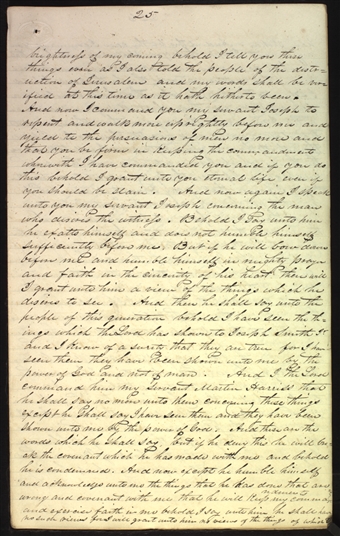 25
brightness of my coming behold I tell you these
things even as I also told the people of the distr-
uction of Jerusalem and my words shall be ver
ified at this time as it hath hitherto been
And now I command you my servant Joseph to
repent and walk more uprightly before me and
yield to the persuasions of men no more and
that you be firm in keeping the commandments
wherewith I have commanded you and if you do
this behold I grant unto you eternal life even if
you should be slain. And now again I speak
unto you my servant Joseph concerning the man
who desires the witness. Behold I say unto him
he exalts himself and does not humble himself
sufficiently before me, But if he will bow down
before me and humble himself in mighty prayer
and faith in the sincerity of his heart then will
I grant unto him a view of the things which he
desires to see. And then he shall say unto the
people of this generation behold I have seen the th-
ings which the Lord has shown to Joseph Smith Jr
and I know of a surety that they are true for I have
seen them they have been shown unto me by the
power of God and not of man. And I the Lord
command him my servant Martin Harriss that
he shall say no more unto them concerning these things
except he shall say I have seen them and they have been
shown unto me by the power of God. And these are the
words which he shall say but if he deny this he will bre
ak the covenant which he has made with me and behold
he is condemned. And now except he humble himself
and acknowledge unto me the things that he has done that are
wrong and covenant with me that he will keep my command
ments
and exercise faith in me behold I say unto him he shall have
no such views for I will grant unto him no views of the things of which